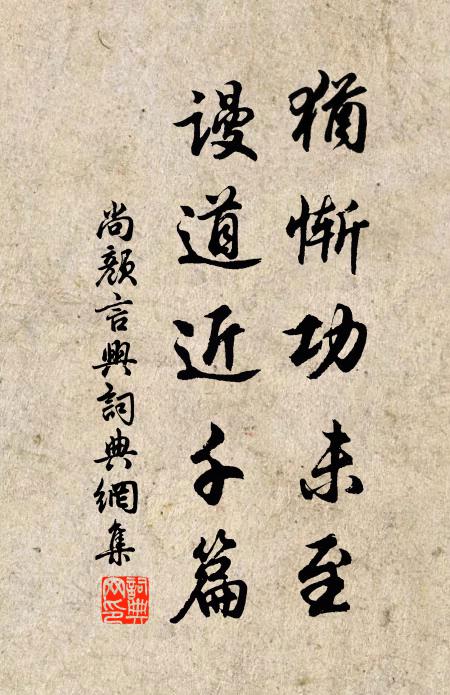 猶慚功未至
謾道近千篇
尚顏言興詞典網集
詞典網印